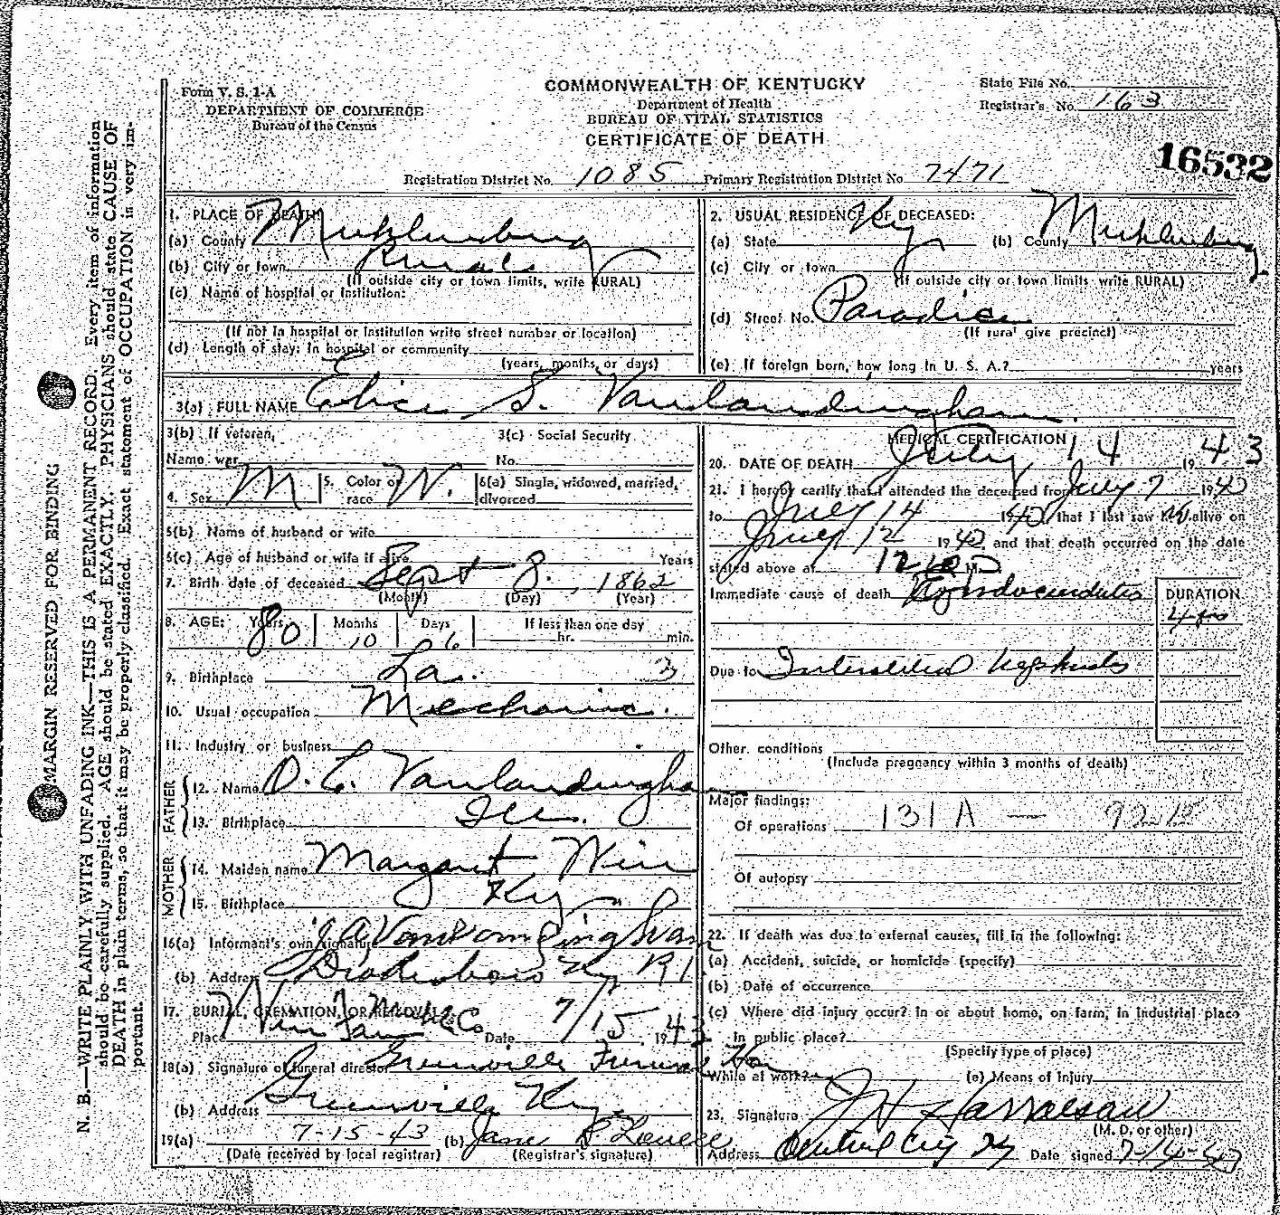 Form V. S. 1-A
DEPARTMENT OF COMMERCE
Bureau of the Census
COMMONWEALTH OF KENTUCKY
Department of Health
BUREAU OF VITAL STATISTICS
CERTIFICATE OF DEATH
State File No.
Registrar's No. 163
16532
Registration District No. 1085 Primary Registration District No. 7471
MARGIN RESERVED FOR BINDING
N. B.—WRITE PLAINLY WITH UNFADING INK—THIS IS A PERMANENT RECORD. Every item of information
should be carefully supplied. AGE should be stated EXACTLY. PHYSICIANS should state CAUSE OF
DEATH in plain terms, so that it may be properly classified. Exact statement of OCCUPATION is very im-
portant.
1. PLACE OF DEATH:
(a) County Muhlenberg
(b) City or town Rural
(If outside city or town limits, write RURAL)
(c) Name of hospital or institution:
(If not in hospital or institution write street number or location)
(d) Length of stay: In hospital or community
(years, months, or days)
2. USUAL RESIDENCE OF DECEASED:
(a) State Ky (b) County Muhlenberg
(c) City or town
(If outside city or town limits write RURAL)
(d) Street No. Paradise
(If rural give precinct)
(e) If foreign born, how long in U. S. A.? years
3(a) FULL NAME S. Vanlandingham
3(b) If veteran,
Name war
3(c) Social Security
No.
4. Sex M 5. Color or race W. 6(a) Single, widowed, married, divorced
5(b) Name of husband or wife
5(c) Age of husband or wife if alive Years
7. Birth date of deceased Sept 8, 1862
(Month) (Day) (Year)
8. AGE: Years 80 Months 10 Days 6 If less than one day hr. min.
9. Birthplace La. 3
10. Usual occupation Mechanic.
11. Industry or business
FATHER
12. Name O. C. Vanlandingham
13. Birthplace Ill.
MOTHER
14. Maiden name Margaret Wier
15. Birthplace Ky
16(a) Informant's own signature J A Vanlandingham
(b) Address Drakesboro Ky R1
17. BURIAL, CREMATION, OR REMOVAL
Place Date 7/15 1943
18(a) Signature of funeral director Greenville Funeral Home
(b) Address Greenville Ky.
19(a) 7-15-43 (b) Jane
(Date received by local registrar) (Registrar's signature)
MEDICAL CERTIFICATION
20. DATE OF DEATH July 14 1943
21. I hereby certify that I attended the deceased from July 7 1940
to July 14 1940 that I last saw alive on
July 12 1940 and that death occurred on the date
stated above at M.
Immediate cause of death
DURATION
Due to Interstitial Nephritis
Other conditions
(Include pregnancy within 3 months of death)
Major findings:
Of operations 131A — 92B
Of autopsy
22. If death was due to external causes, fill in the following:
(a) Accident, suicide, or homicide (specify)
(b) Date of occurrence
(c) Where did injury occur? In or about home, on farm, in industrial place
in public place?
(Specify type of place)
While at work? (e) Means of Injury
23. Signature
(M. D. or other)
Address Central City Ky Date signed